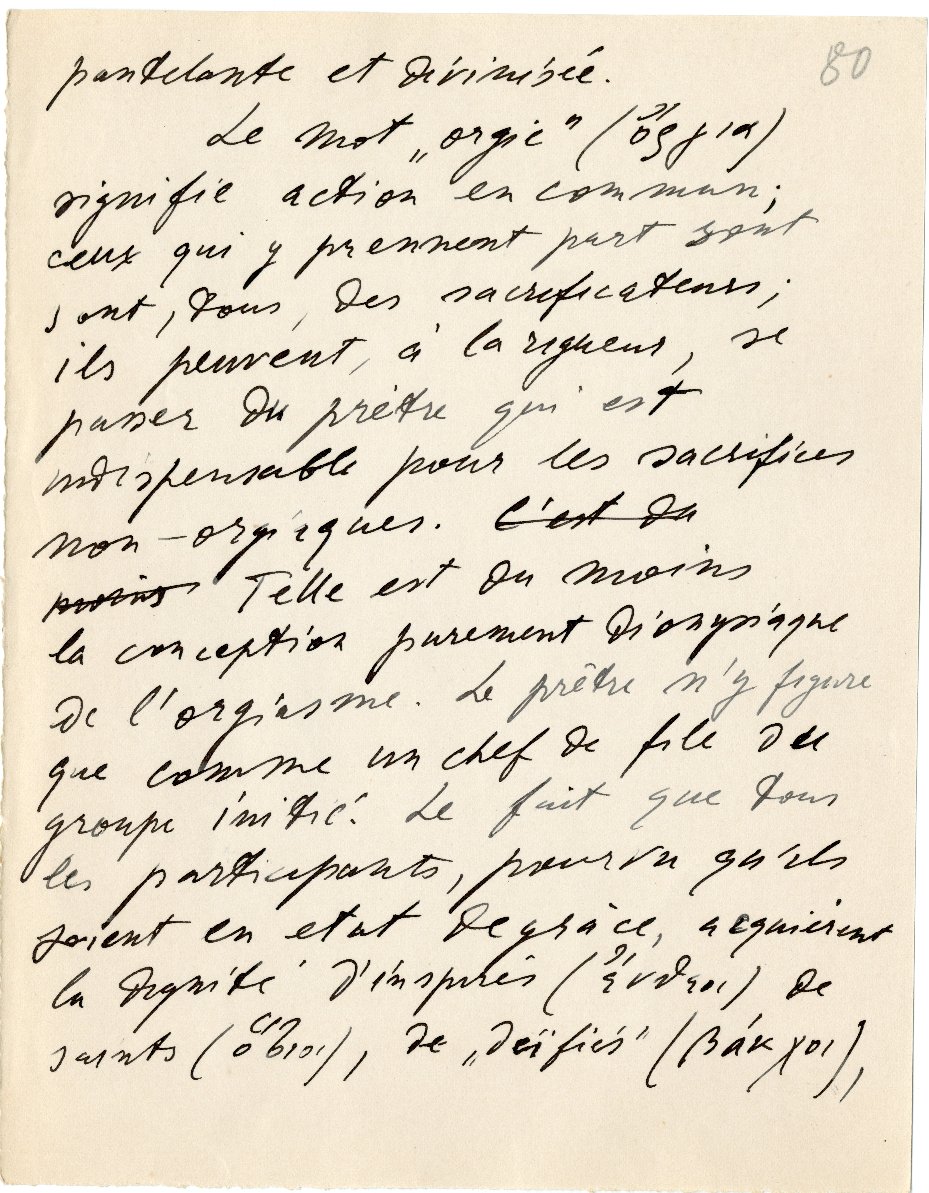 80
pantelante et divinisée.
Le mot „orgie” (ὄργια)
signifie action en commun;
ceux qui y prennent part sont
sont, tous, des sacrificateurs;
ils peuvent, à la rigueur, se
passer du prêtre qui est
indispensable pour les sacrifices
non-orgiaques. C'est du
moins Telle est du moins
la conception purement dionysiaque
de l'orgiasme. Le prêtre n'y figure
que comme un chef de file du
groupe initié. Le fait que tous
les participants, pourvu qu'ils
soient en etat de grâce, acquièrent
la dignité d'inspirés (ἔνθεοι) de
saints (ὅσιοι), de „déifiés” (βάκχοι),